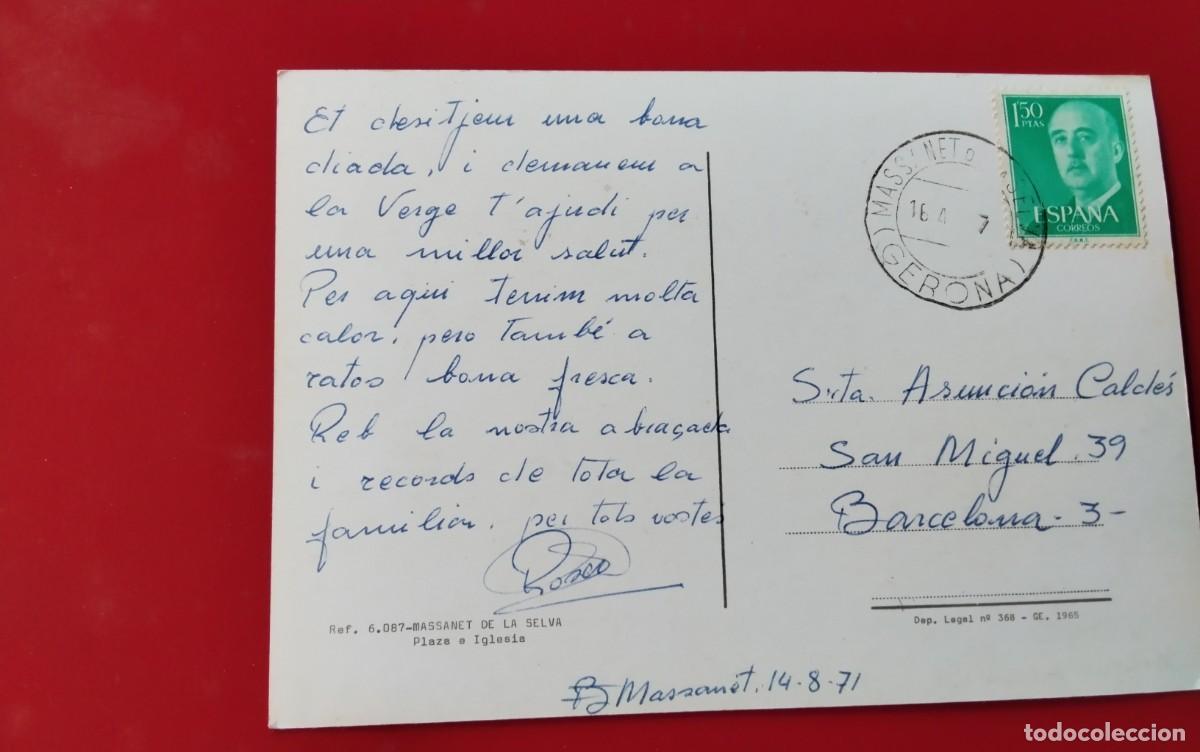 Et desitjem una bona
diada, i demanem a
la Verge t'ajudi per
una millor salut.
Per aqui tenim molta
calor, pero també a
ratos bona fresca.
Reb la nostra abraçada
i records de tota la
familia, per tots vostés
Rosa
Ref. 6.087-MASSANET DE LA SELVA
Plaza e Iglesia
Massanet, 14-8-71
1'50
PTAS
ESPAÑA
CORREOS
MASSANET SELVA
(GERONA)
Srta. Asunción Caldés
San Miguel. 39
Barcelona-3-
Dep. Legal nº 368 - GE. 1965
todocoleccion